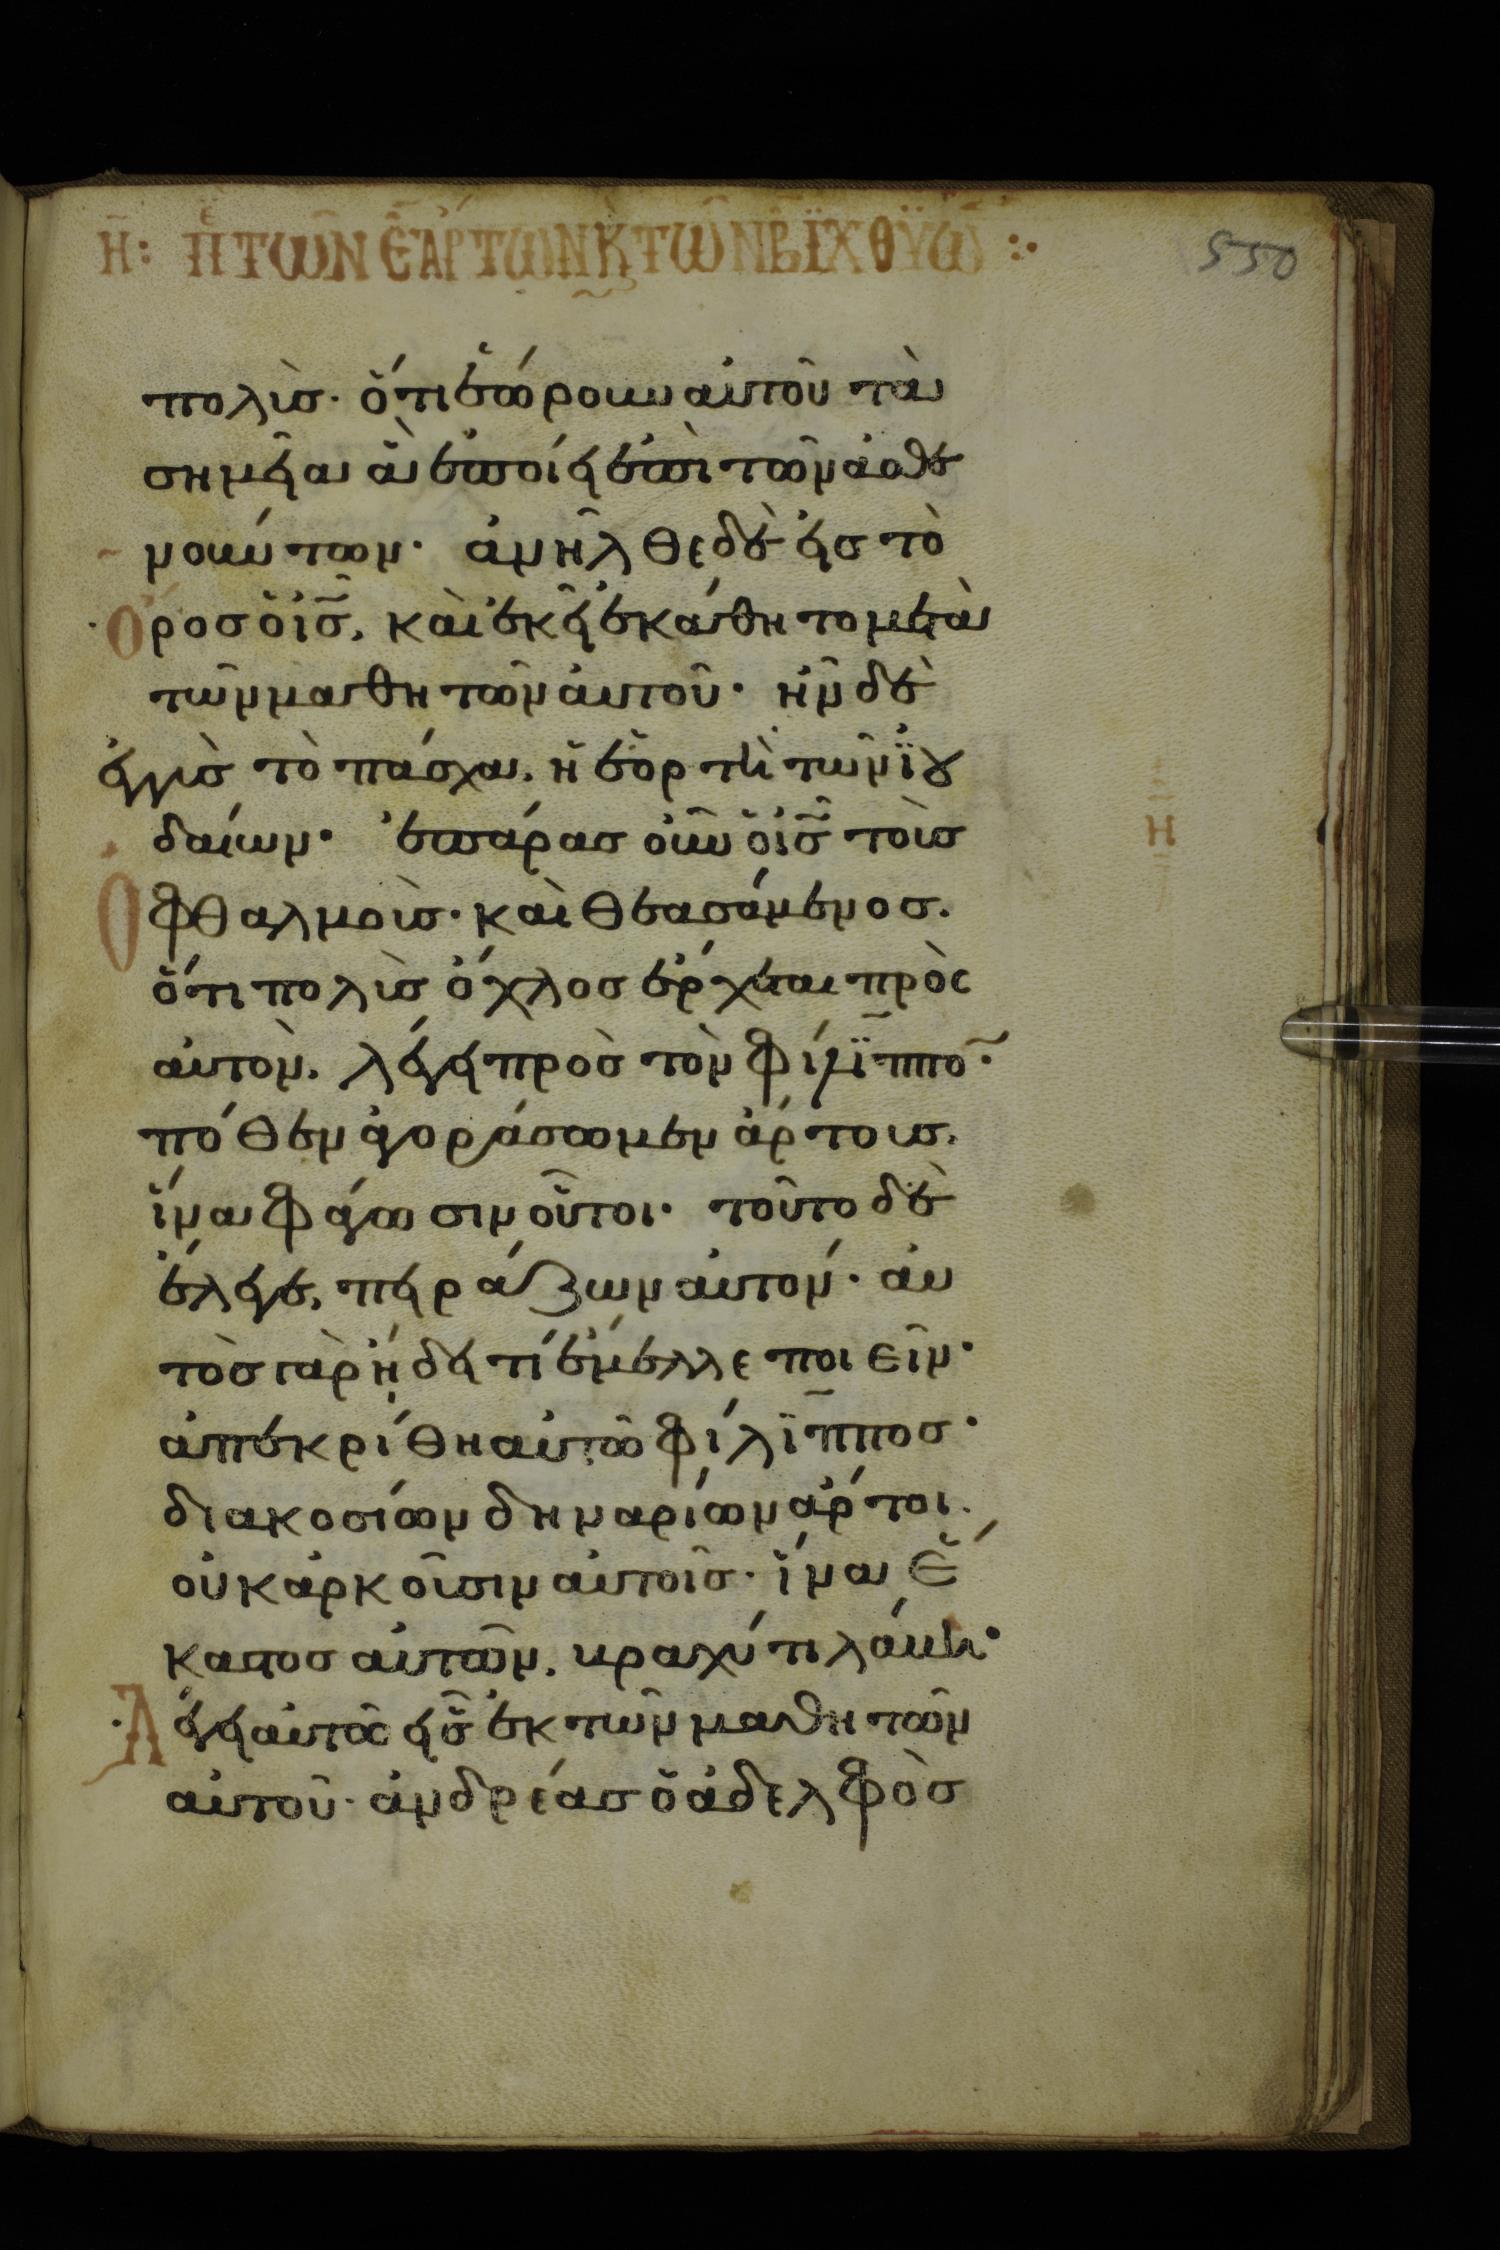 η̄: πε τῶν ε̄ ἄρτων κ̀ τῶν β̄ ϊχθύω̄ :·
550
πολὺσ· ὅτι ἑώρουν αὐτοῦ τὰ
σημεῖα ἃ ἐποίει ἐπὶ τῶν ἀσθε
νούντων· ἀνῆλθε δὲ εἰσ τὸ
ὄροσ ὁ ι̅σ̅, καὶ ἐκεῖ ἐκάθητο μετὰ
τῶν μαθητῶν αὐτοῦ· ἦν δὲ
ἐγγὺσ τὸ πάσχα. ἡ ἑορτὴ τῶν ϊου
δαίων· ἐπάρασ οὖν ὁ ι̅σ̅ τοὺσ
ὀφθαλμοὺσ· καὶ θεασάμενοσ.
η̄
ὅτι πολὺσ ὄχλοσ ἔρχεται πρὸσ
αὐτὸν. λέγει πρὸσ τὸν φίλϊππο̄·
πόθεν ἀγοράσωμεν ἄρτουσ.
ἵνα φάγωσιν οὗτοι· τοῦτο δὲ
ἔλεγε, πειράζων αὐτόν· αὐ
τὸσ γὰρ ἤδει τί ἔμελλε ποιεῖν·
ἀπεκρίθη αὐτῶ φίλϊπποσ·
διακοσίων δηναρίων ἄρτοι.
οὐκ ἀρκοῦσιν αὐτοῖσ· ἵνα ἕ
καστοσ αὐτῶν. βραχύ τι λάβη·
λέγει αὐτῶ εἷσ ἐκ τῶν μαθητῶν
αὐτοῦ· ἀνδρέασ ὁ ἀδελφὸσ